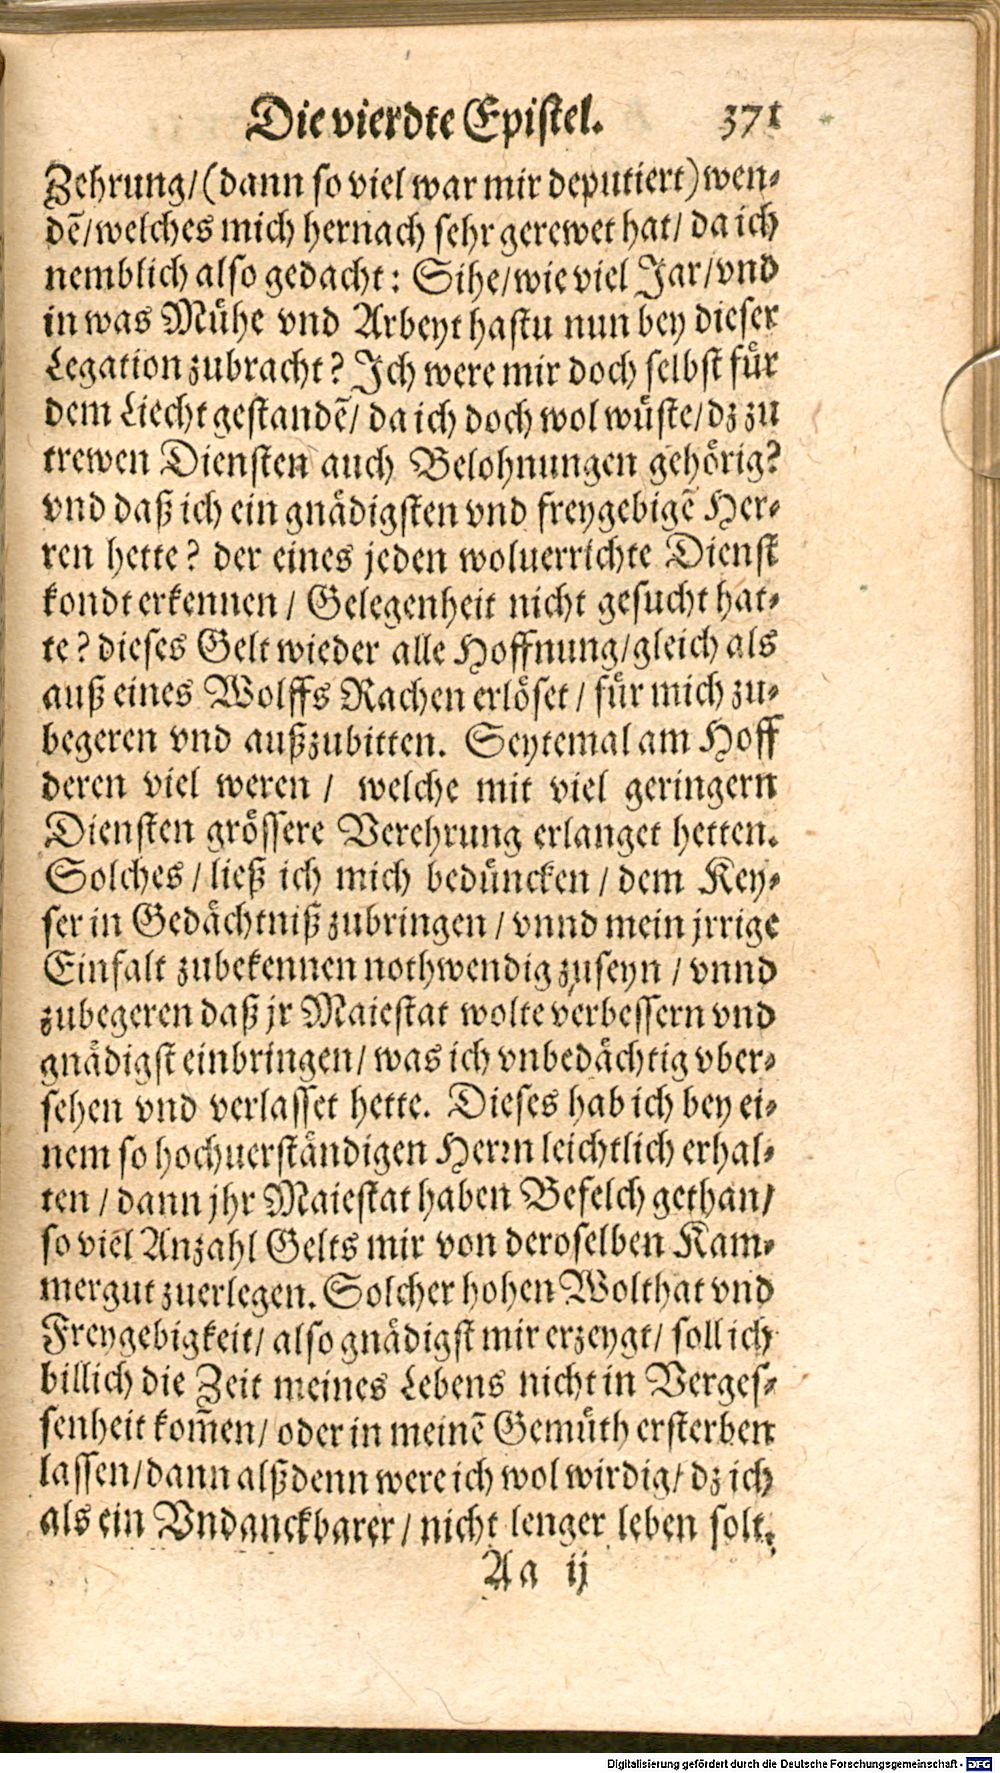 Die vierdte Epistel. 371
Zehrung/ (dann so viel war mir deputiert) wen-
dẽ/ welches mich hernach sehr gerewet hat/ da ich
nemblich also gedacht: Sihe/ wie viel Jar/ vnd
in was Mühe vnd Arbeyt hastu nun bey dieser
Legation zubracht? Ich were mir doch selbst für
dem Liecht gestandẽ/ da ich doch wol wüste/ dz zu
trewen Diensten auch Belohnungen gehörig?
vnd daß ich ein gnädigsten vnd freygebigẽ Her-
ren hette? der eines jeden woluerrichte Dienst
kondt erkennen / Gelegenheit nicht gesucht hat-
te? dieses Gelt wieder alle Hoffnung/ gleich als
auß eines Wolffs Rachen erlöset / für mich zu-
begeren vnd außzubitten. Seytemal am Hoff
deren viel weren / welche mit viel geringern
Diensten grössere Verehrung erlanget hetten.
Solches / ließ ich mich bedüncken / dem Key-
ser in Gedächtniß zubringen / vnnd mein jrrige
Einfalt zubekennen nothwendig zuseyn / vnnd
zubegeren daß jr Maiestat wolte verbessern vnd
gnädigst einbringen/ was ich vnbedächtig vber-
sehen vnd verlasset hette. Dieses hab ich bey ei-
nem so hochuerständigen Herrn leichtlich erhal-
ten / dann jhr Maiestat haben Befelch gethan/
so viel Anzahl Gelts mir von deroselben Kam-
mergut zuerlegen. Solcher hohen Wolthat vnd
Freygebigkeit/ also gnädigst mir erzeygt/ soll ich
billich die Zeit meines Lebens nicht in Verges-
senheit kom̃en/ oder in meinẽ Gemüth ersterben
lassen/ dann alßdenn were ich wol wirdig/ dz ich
als ein Vndanckbarer / nicht lenger leben solt.
Aa ij
Digitalisierung gefördert durch die Deutsche Forschungsgemeinschaft - DFG